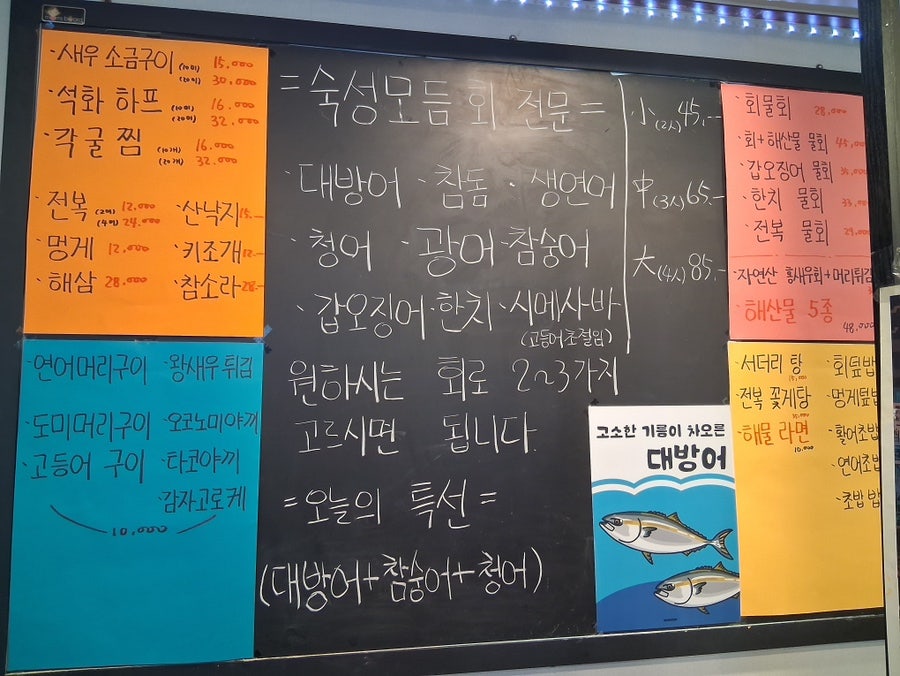 ·새우 소금구이 (10미) 15.000
(20미) 30.000
·석화 하프 (10미) 16.000
(20미) 32.000
·각굴 찜 (10개) 16.000
(20개) 32.000
·전복 (2미) 12.000
(4미) 24.000
·멍게 12.000
·해삼 28.000
·산낙지 15.-
·키조개
·참소라
·연어머리구이 ·왕새우튀김
·도미머리구이 ·오코노미야끼
·고등어 구이 ·타코야끼
·감자고로케
10.000
= 숙성모듬회 전문 =
·대방어 ·참돔 ·생연어
·청어 ·광어 ·참숭어
·갑오징어 ·한치 ·시메사바
(고등어초절임)
원하시는 회로 2~3가지
고르시면 됩니다.
= 오늘의 특선 =
(대방어+참숭어+청어)
小(2人) 45.-
中(3人) 65.-
大(4人) 85.-
고소한 기름이 차오른
대방어
·회물회 28.000
·회+해산물 물회 45,000
·갑오징어 물회
·한치 물회 33.000
·전복 물회 29.000
·자연산 황새우회+머리튀김
·해산물 5종
48.000
·서더리 탕
·전복 꽃게탕
·해물 라면
10.000
·회덮밥
·멍게덮밥
·활어초밥
·연어초밥
·초밥 밥